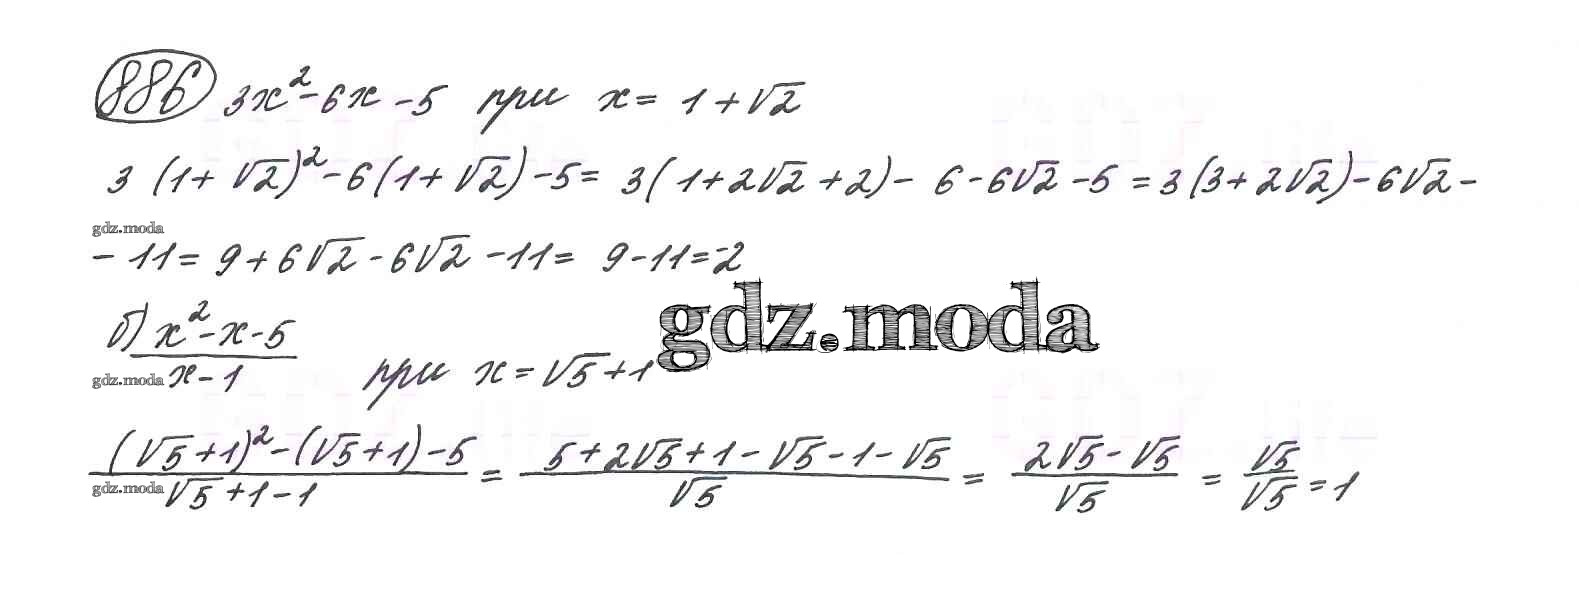 886 3x² - 6x - 5 при x = 1 + √2
3 (1 + √2)² - 6 (1 + √2) - 5 = 3 (1 + 2√2 + 2) - 6 - 6√2 - 5 = 3 (3 + 2√2) - 6√2 -
gdz.moda
- 11 = 9 + 6√2 - 6√2 - 11 = 9 - 11 = -2
gdz.moda
б) (x² - x - 5)/(x - 1) при x = √5 + 1
gdz.moda
((√5 + 1)² - (√5 + 1) - 5)/(√5 + 1 - 1) = (5 + 2√5 + 1 - √5 - 1 - √5)/√5 = (2√5 - √5)/√5 = √5/√5 = 1
gdz.moda